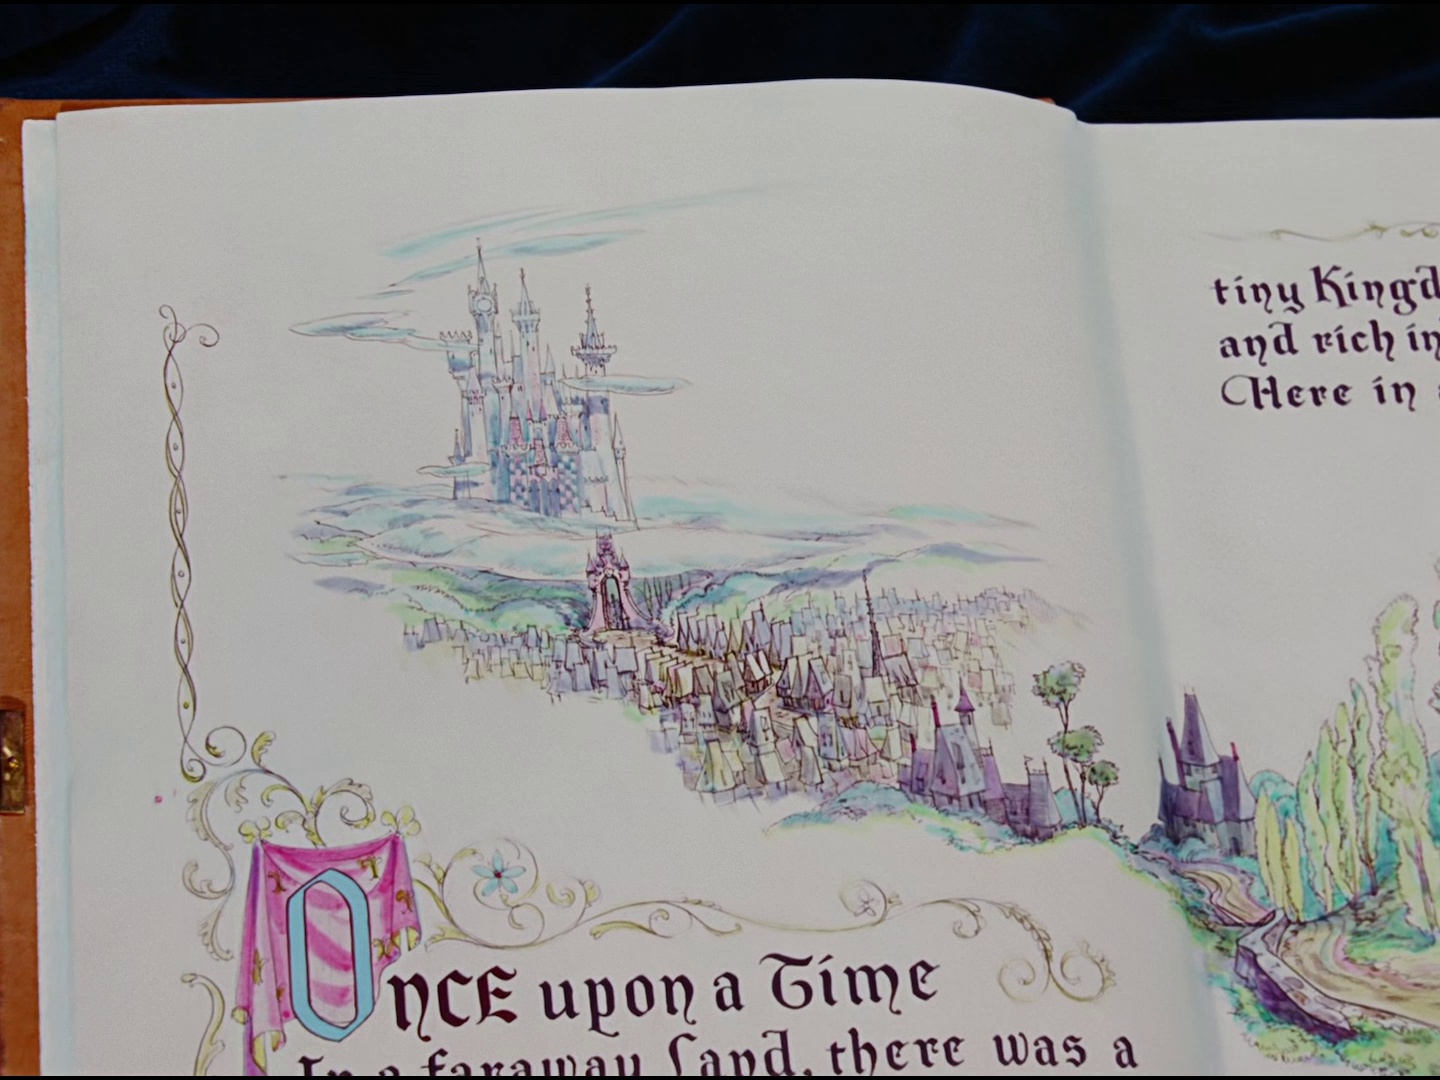 Once upon a Time
In a faraway Land, there was a
tiny
and rich
Here in